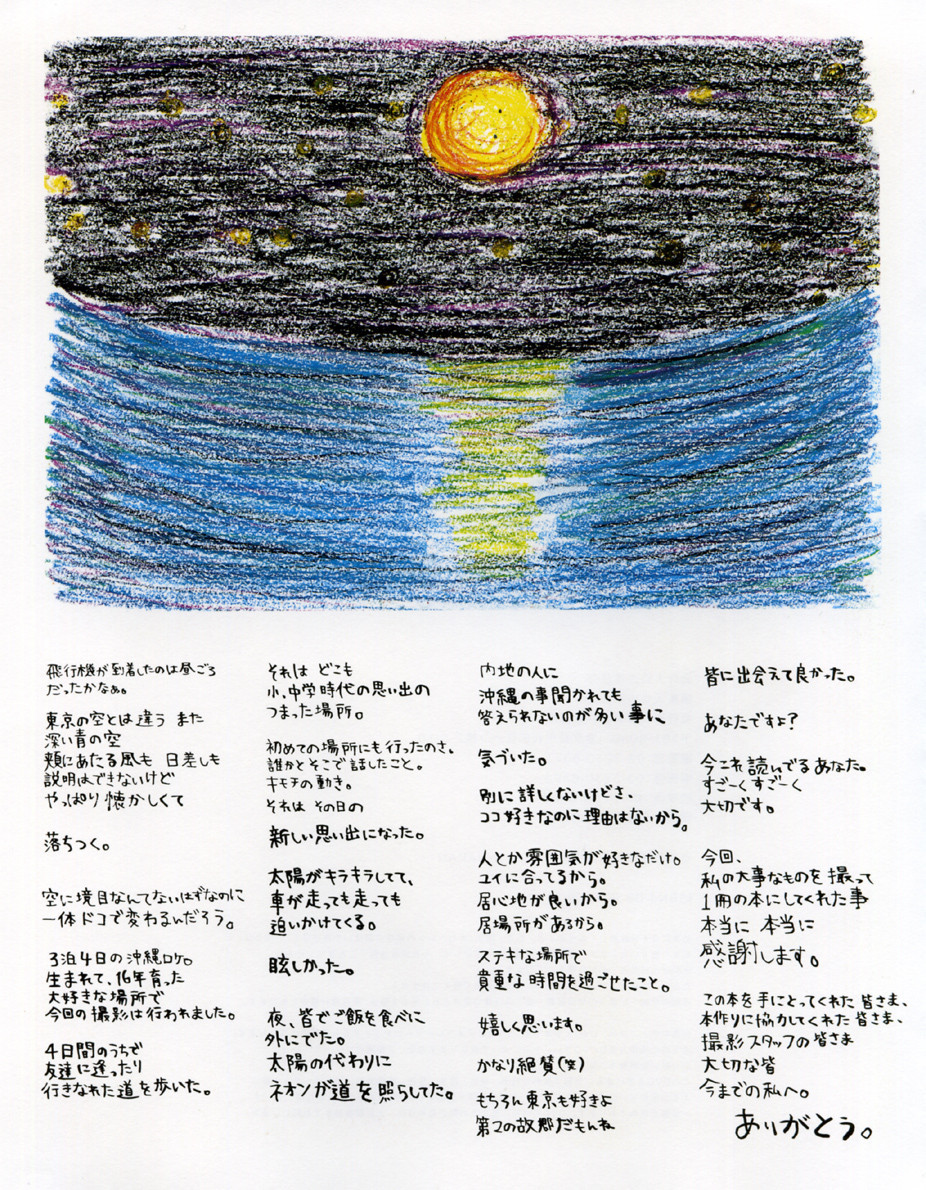 飛行機が到着したのは昼ごろ
だったかなぁ。
東京の空とは違う また
深い青の空
頬にあたる風も 日差しも
説明はできないけど
やっぱり懐かしくて
落ちつく。
空に境目なんてないはずなのに
一体ドコで変わるんだろう。
3泊4日の沖縄ロケ。
生まれて、16年育った
大好きな場所で
今回の撮影は行われました。
4日間のうちで
友達に逢ったり
行きなれた道を歩いた。
それは どこも
小、中学時代の思い出の
つまった場所。
初めての場所にも行ったのさ。
誰かとそこで話したこと。
キモチの動き。
それは その日の
新しい思い出になった。
太陽がキラキラしてて、
車が走っても走っても
追いかけてくる。
眩しかった。
夜、皆でご飯を食べに
外にでた。
太陽の代わりに
ネオンが道を照らしてた。
内地の人に
沖縄の事聞かれても
答えられないのが多い事に
気づいた。
別に詳しくないけどさ、
ココ好きなのに理由はないから。
人とか雰囲気が好きなだけ。
ユイに合ってるから。
居心地が良いから。
居場所があるから。
ステキな場所で
貴重な時間を過ごせたこと。
嬉しく思います。
かなり絶賛(笑)
もちろん東京も好きよ
第2の故郷だもんね
皆に出会えて良かった。
あなたですよ?
今これ読んでるあなた。
すごーくすごーく
大切です。
今回、
私の大事なものを撮って
1冊の本にしてくれた事
本当に 本当に
感謝します。
この本を手にとってくれた皆さま、
本作りに協力してくれた皆さま、
撮影スタッフの皆さま
大切な皆
今までの私へ。
ありがとう。